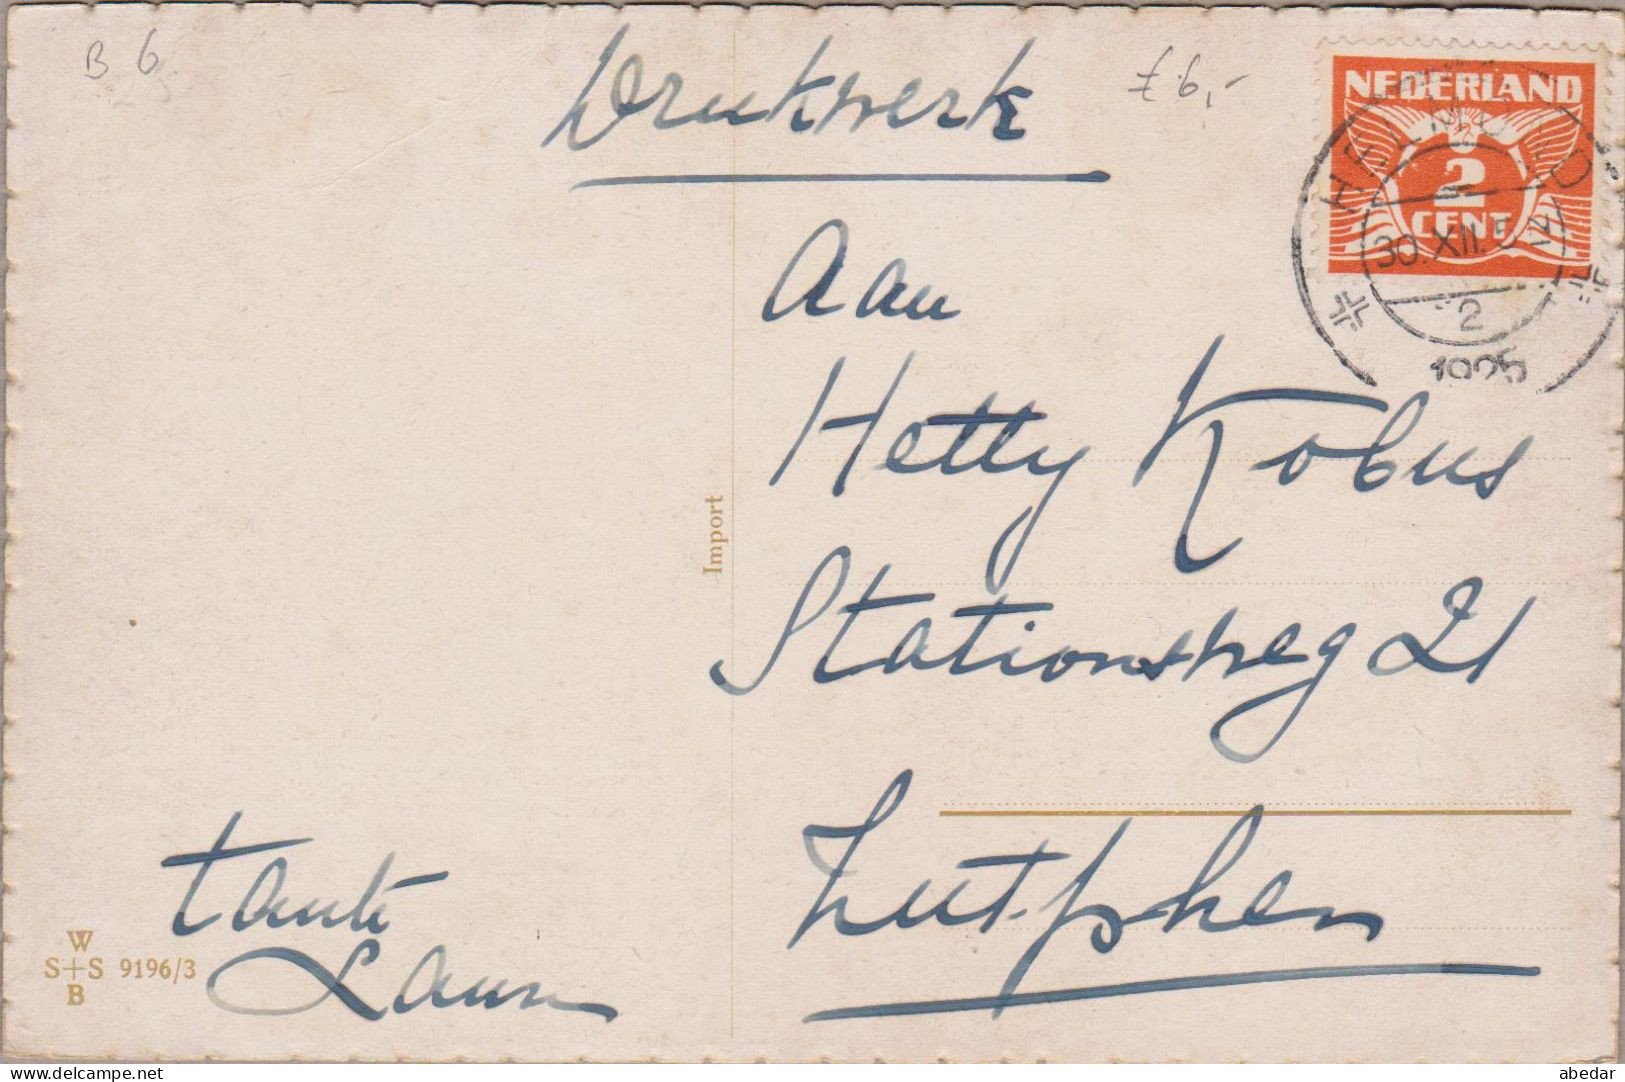 B 6
Drukwerk
£6,-
NEDERLAND
2
CENT
HELMOND
30.XII.
2
1925
Aan
Hetty Kobus
Stationsweg 21
Zutphen
Import
tante
Laura
W
S+S 9196/3
B
delcampe.net
abedar